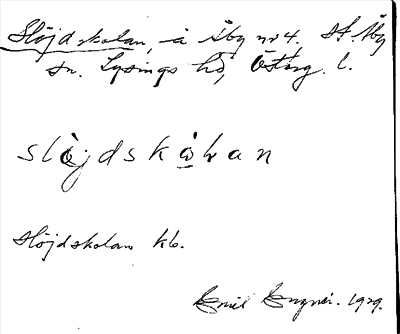 Slöjdskolan, å Åby nr 4. St. Åby
sn. Lysings hd, Österg. l.
slöjdskolan
Slöjdskolan kb.
Emil 1929.